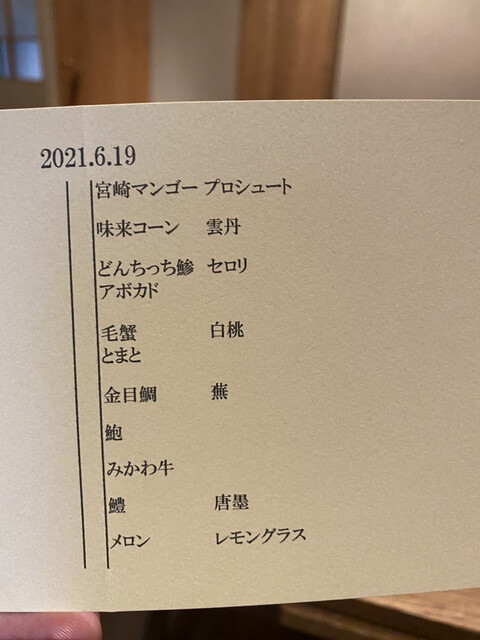 2021.6.19
宮崎マンゴー プロシュート
味来コーン 雲丹
どんちっち鯵 セロリ
アボカド
毛蟹 白桃
とまと
金目鯛 蕪
鮑
みかわ牛
鱧 唐墨
メロン レモングラス